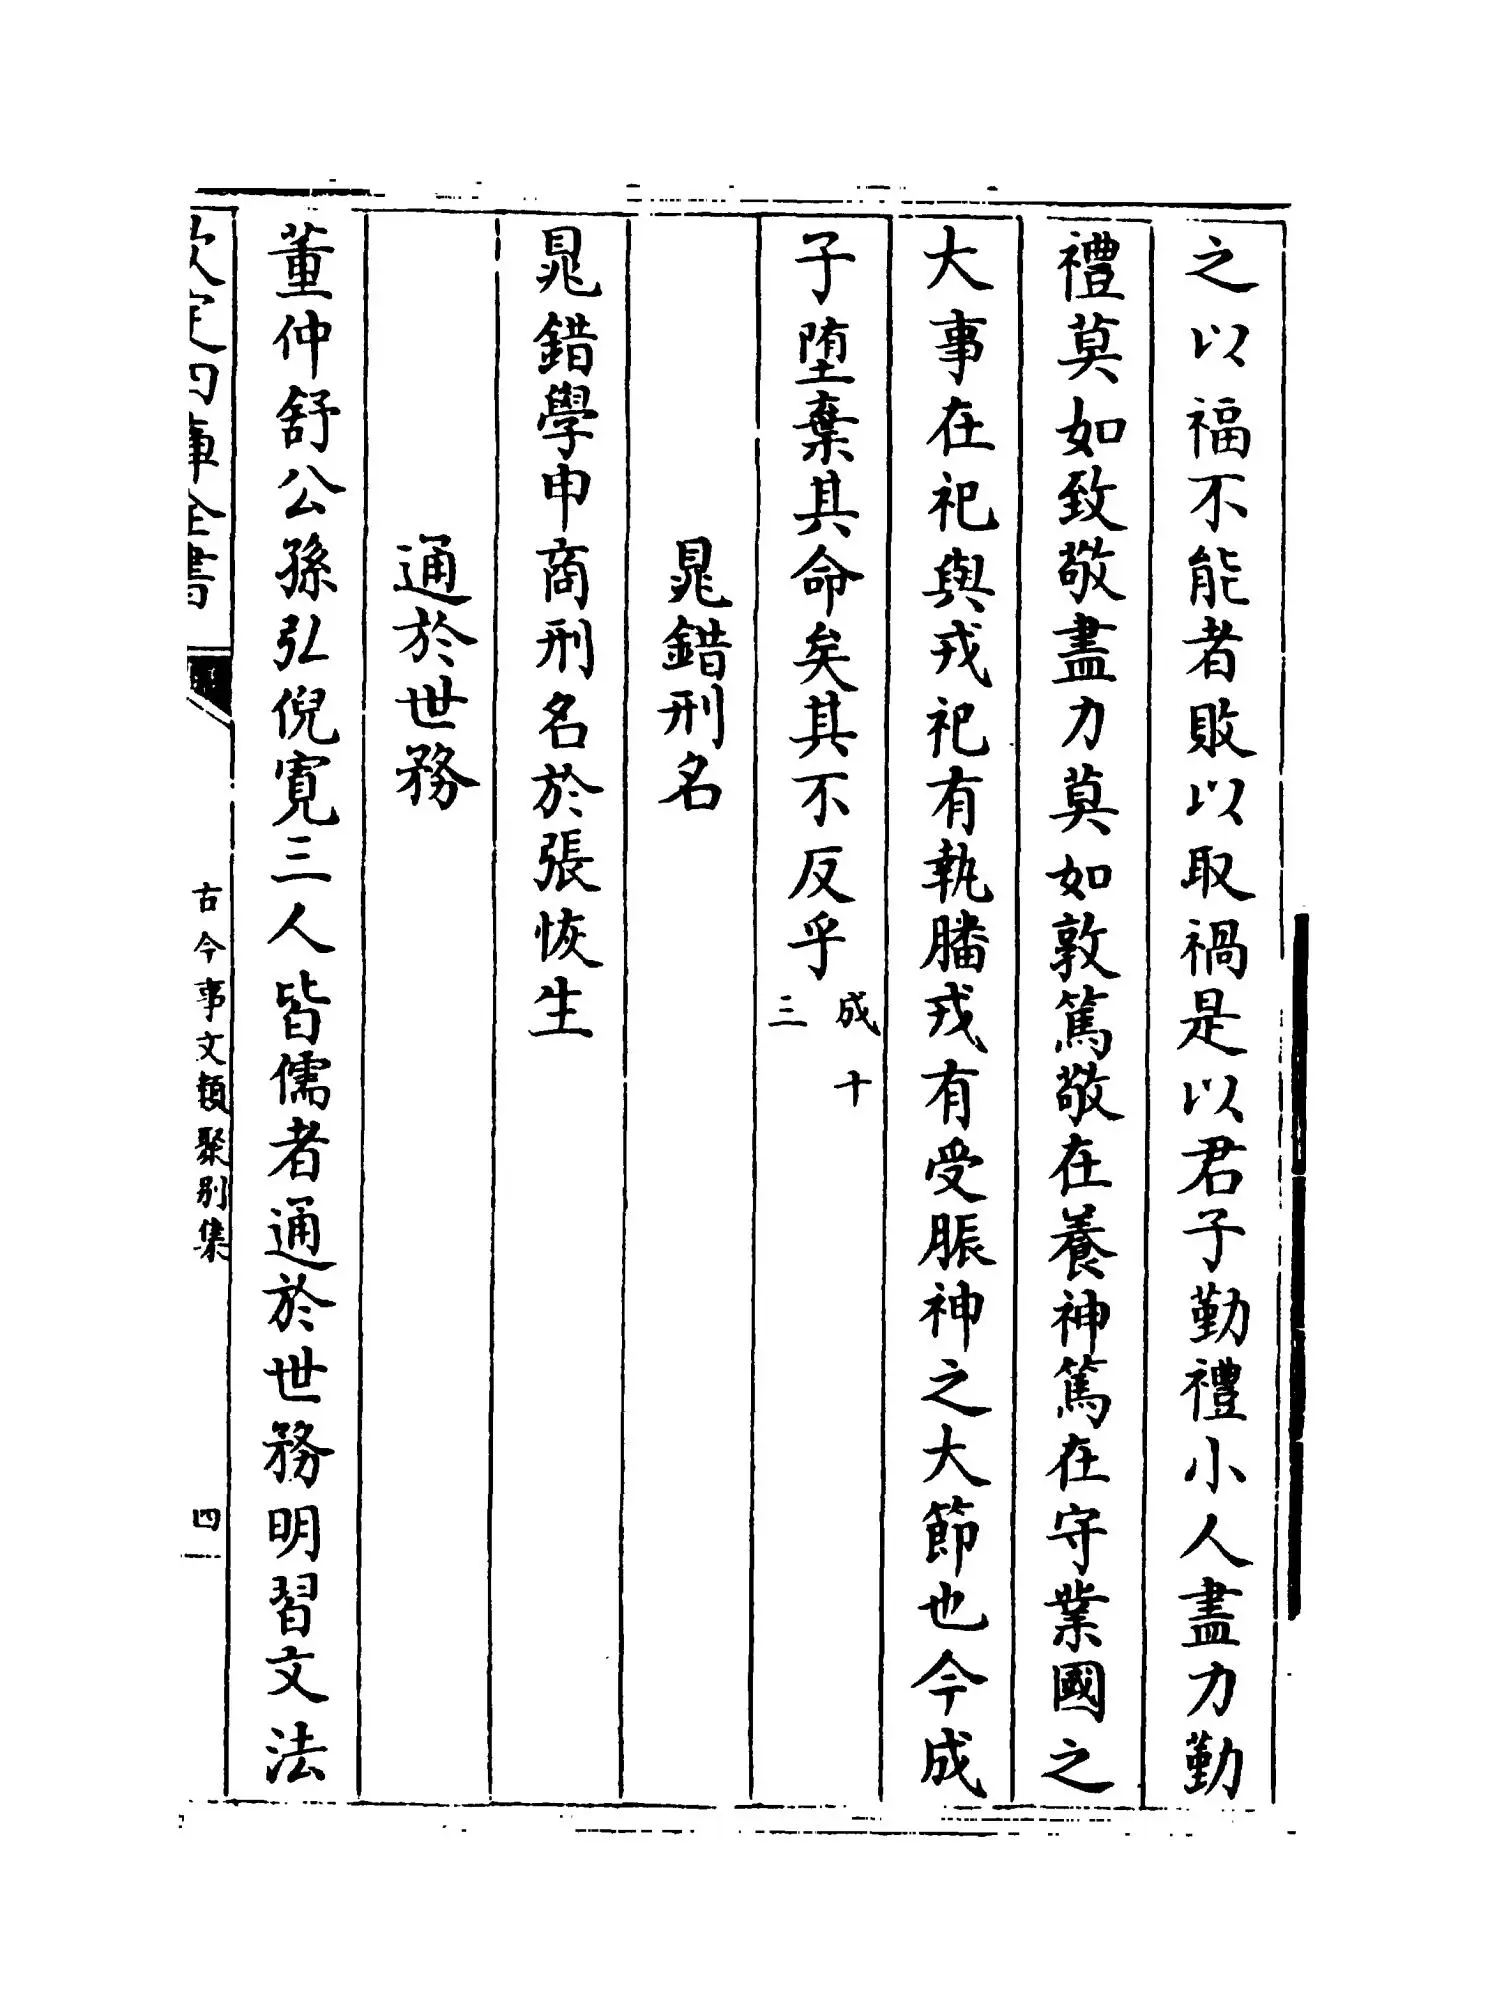 之以福不能者敗以取禍是以君子勤禮小人盡力勤
禮莫如致敬盡力莫如敦篤敬在養神篤在守業國之
大事在祀與戎祀有執膰戎有受脤神之大節也今成
子墮棄其命矣其不反乎成十三
晁錯刑名
晁錯學申商刑名於張恢生
通於世務
董仲舒公孫弘倪寛三人皆儒者通於世務明習文法
欽定四庫全書
古今事文類聚别集
四